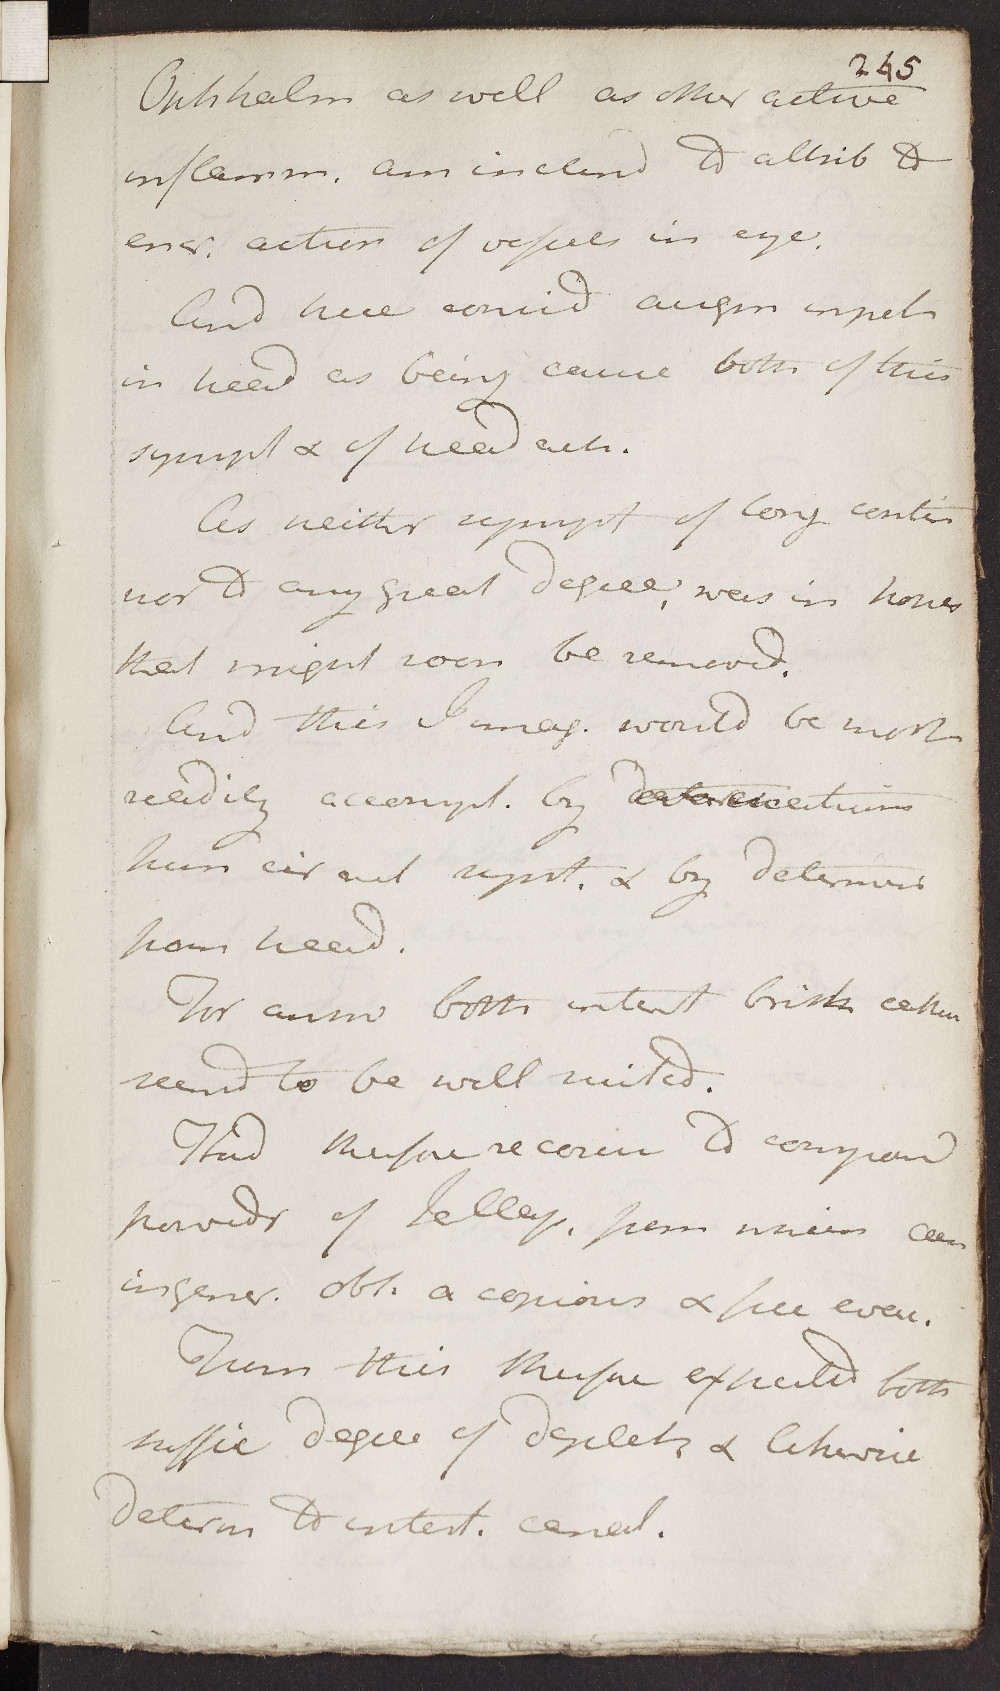 245
Ophhalm as well as other active
inflamm. am inclind to attrib to
encr. action of vessels in eye.
And here consid augm impet
in head as being cause both of this
sympt & of head ach.
As neither sympt of long contin
nor to any great degree, was in hopes
that might soon be removd.
And this I imag. would be most
readily accompl. by
from circul syst. & by determin
from head.
For answ both intent brisk cathar
seemd to be well suited.
Had therfore recourse to compound
powder of Jallap, from which can
in gener. obt. a copious & free evac.
From this therfore expected both
suffic degree of deplet, & likewise
determ to intest. canal.